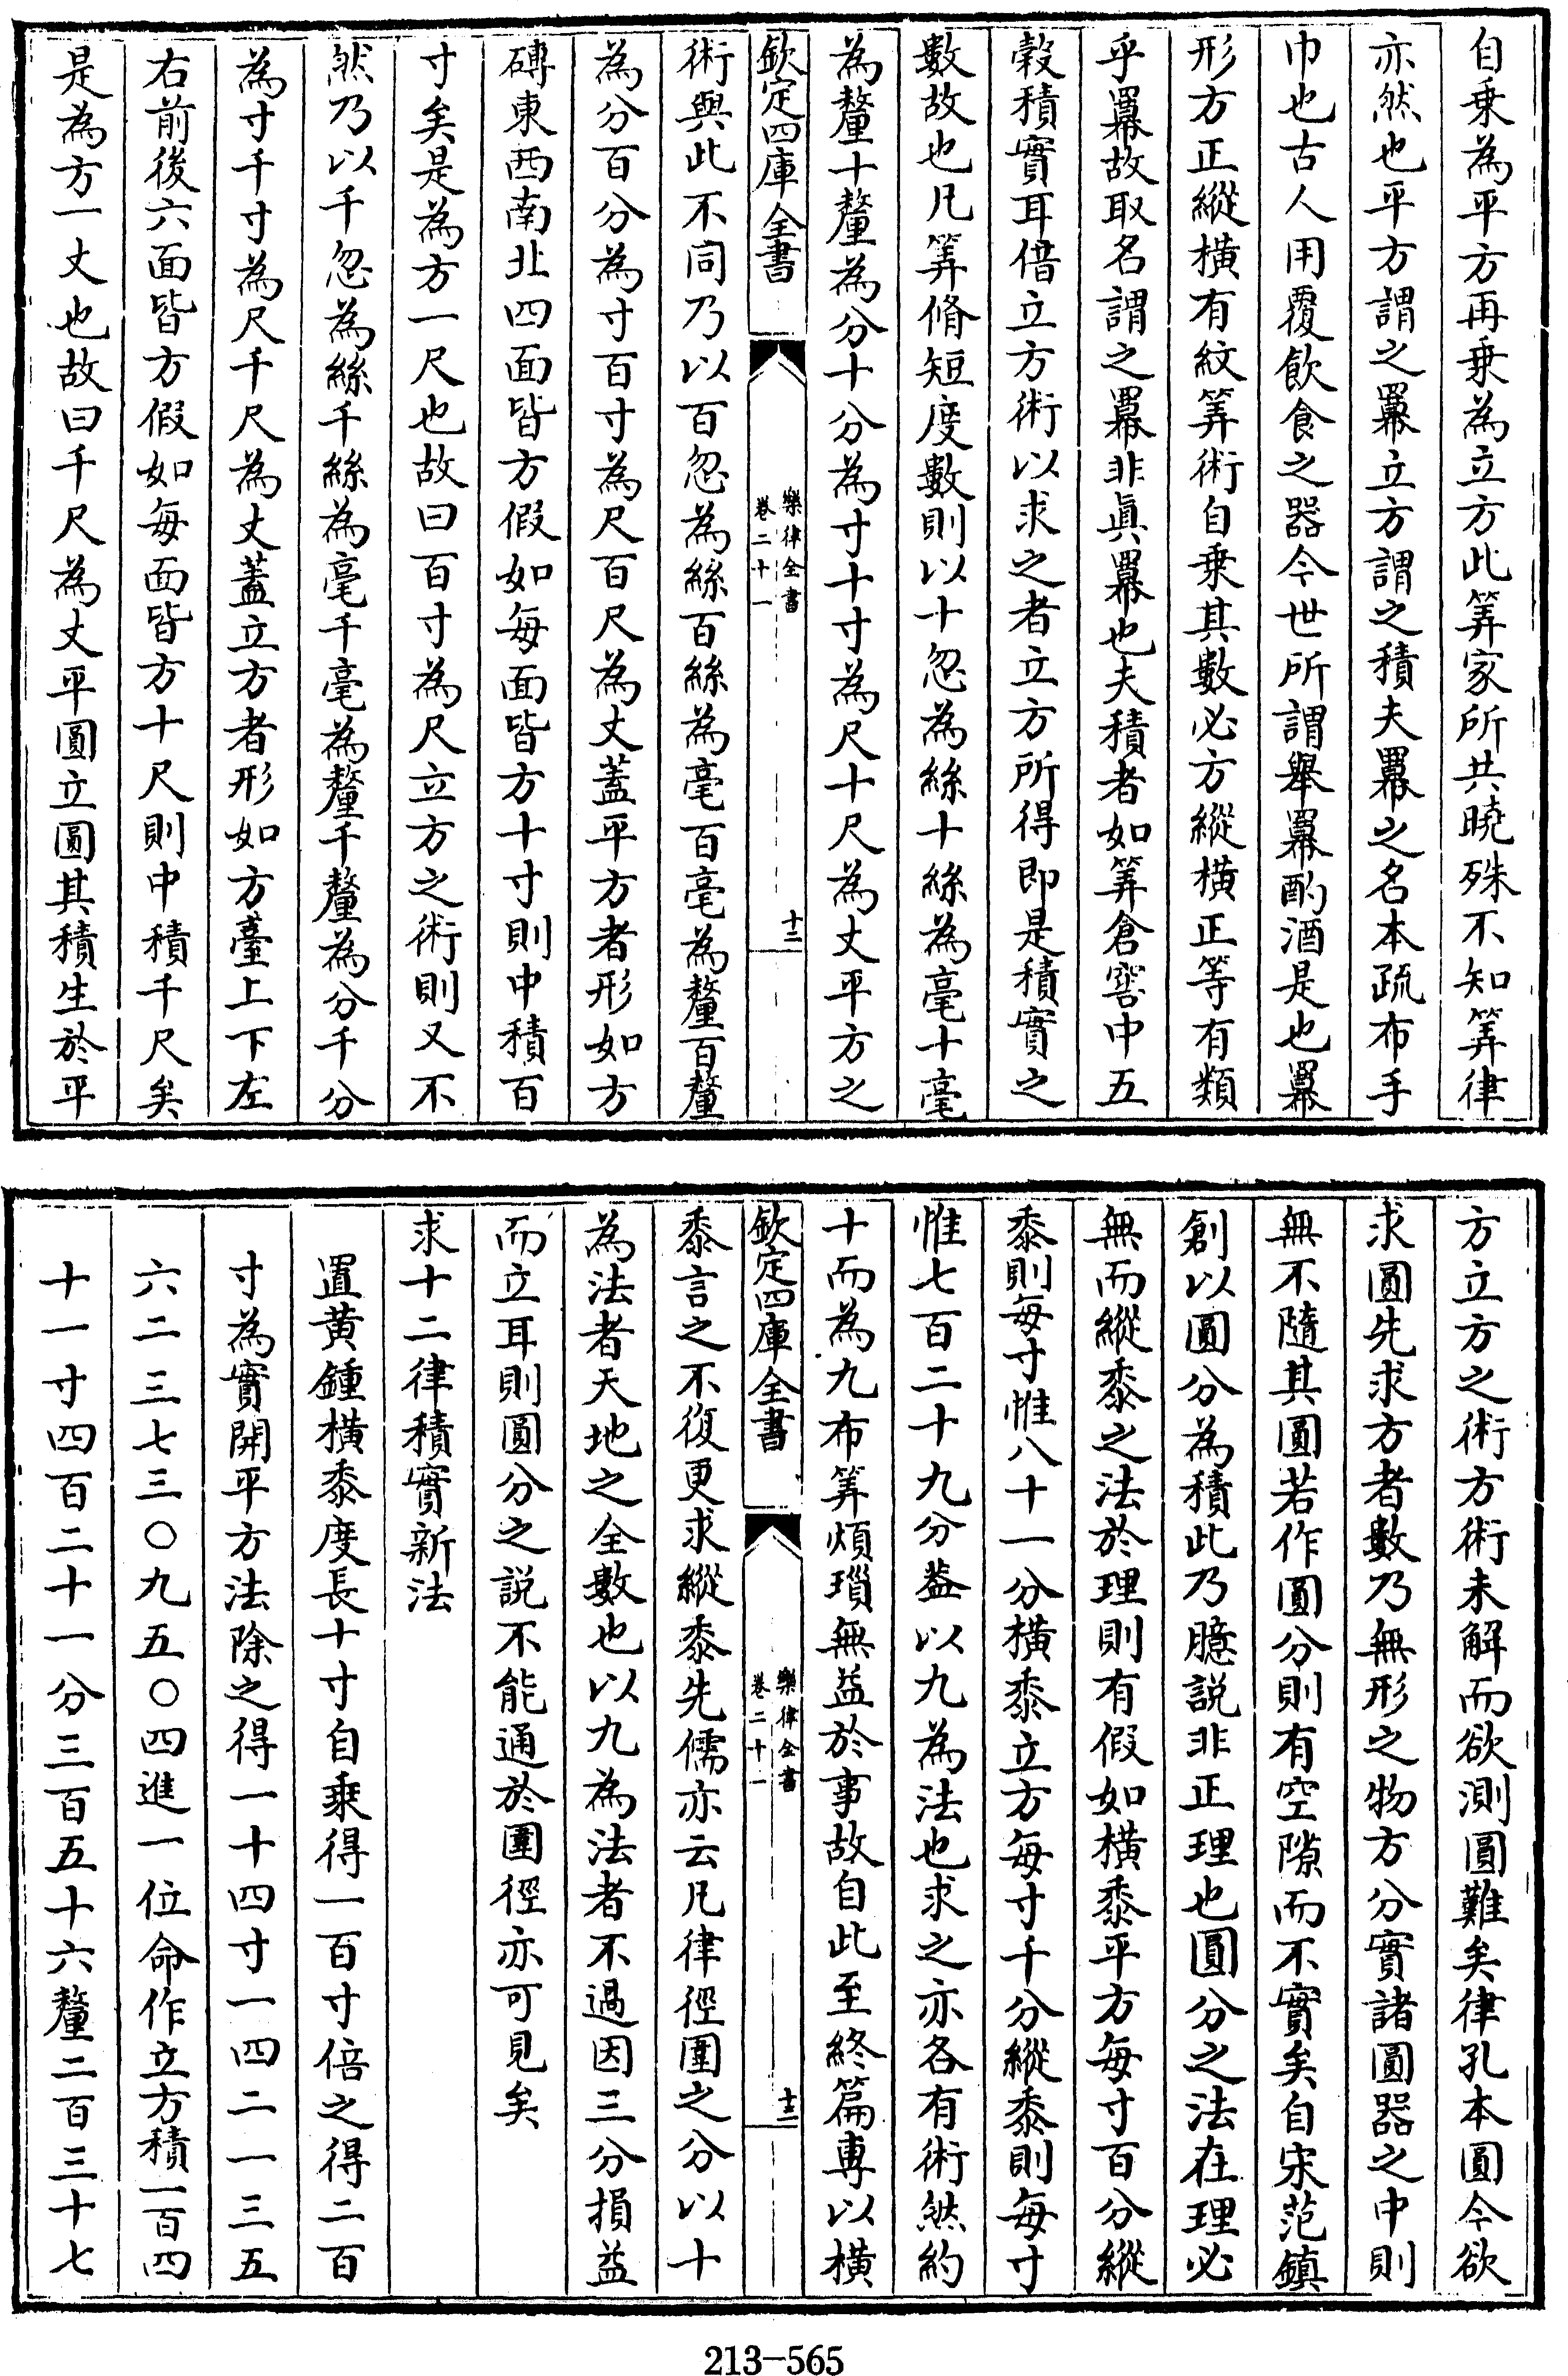 自乗為平方再乗為立方此筭家所共曉殊不知筭律
亦然也平方謂之羃立方謂之積夫羃之名本疏布手
巾也古人用覆飲食之器今世所謂舉羃酌酒是也羃
形方正縱橫有紋筭術自乗其數必方縱橫正等有類
乎羃故取名謂之羃非真羃也夫積者如筭倉窖中五
穀積實耳借立方術以求之者立方所得即是積實之
數故也凡筭脩短度數則以十忽為絲十絲為毫十毫
為釐十釐為分十分為寸十寸為尺十尺為丈平方之
欽定四庫全書
樂律全書
卷二十一
十二
術與此不同乃以百忽為絲百絲為毫百毫為釐百釐
為分百分為寸百寸為尺百尺為丈蓋平方者形如方
磚東西南北四面皆方假如每面皆方十寸則中積百
寸矣是為方一尺也故曰百寸為尺立方之術則又不
然乃以千忽為絲千絲為毫千毫為釐千釐為分千分
為寸千寸為尺千尺為丈蓋立方者形如方臺上下左
右前後六面皆方假如每面皆方十尺則中積千尺矣
是為方一丈也故曰千尺為丈平圓立圓其積生於平
方立方之術方術未解而欲測圓難矣律孔本圓今欲
求圓先求方者數乃無形之物方分實諸圓器之中則
無不隨其圓若作圓分則有空隙而不實矣自宋范鎮
創以圓分為積此乃臆説非正理也圓分之法在理必
無而縱黍之法於理則有假如橫黍平方每寸百分縱
黍則每寸惟八十一分橫黍立方每寸千分縱黍則每寸
惟七百二十九分蓋以九為法也求之亦各有術然約
十而為九布筭煩瑣無益於事故自此至終篇專以橫
欽定四庫全書
樂律全書
卷二十一
十三
黍言之不復更求縱黍先儒亦云凡律徑圍之分以十
為法者天地之全數也以九為法者不過因三分損益
而立耳則圓分之説不能通於圍徑亦可見矣
求十二律積實新法
置黄鍾橫黍度長十寸自乗得一百寸倍之得二百
寸為實開平方法除之得一十四寸一四二一三五
六二三七三〇九五〇四進一位命作立方積一百四
十一寸四百二十一分三百五十六釐二百三十七
213-565